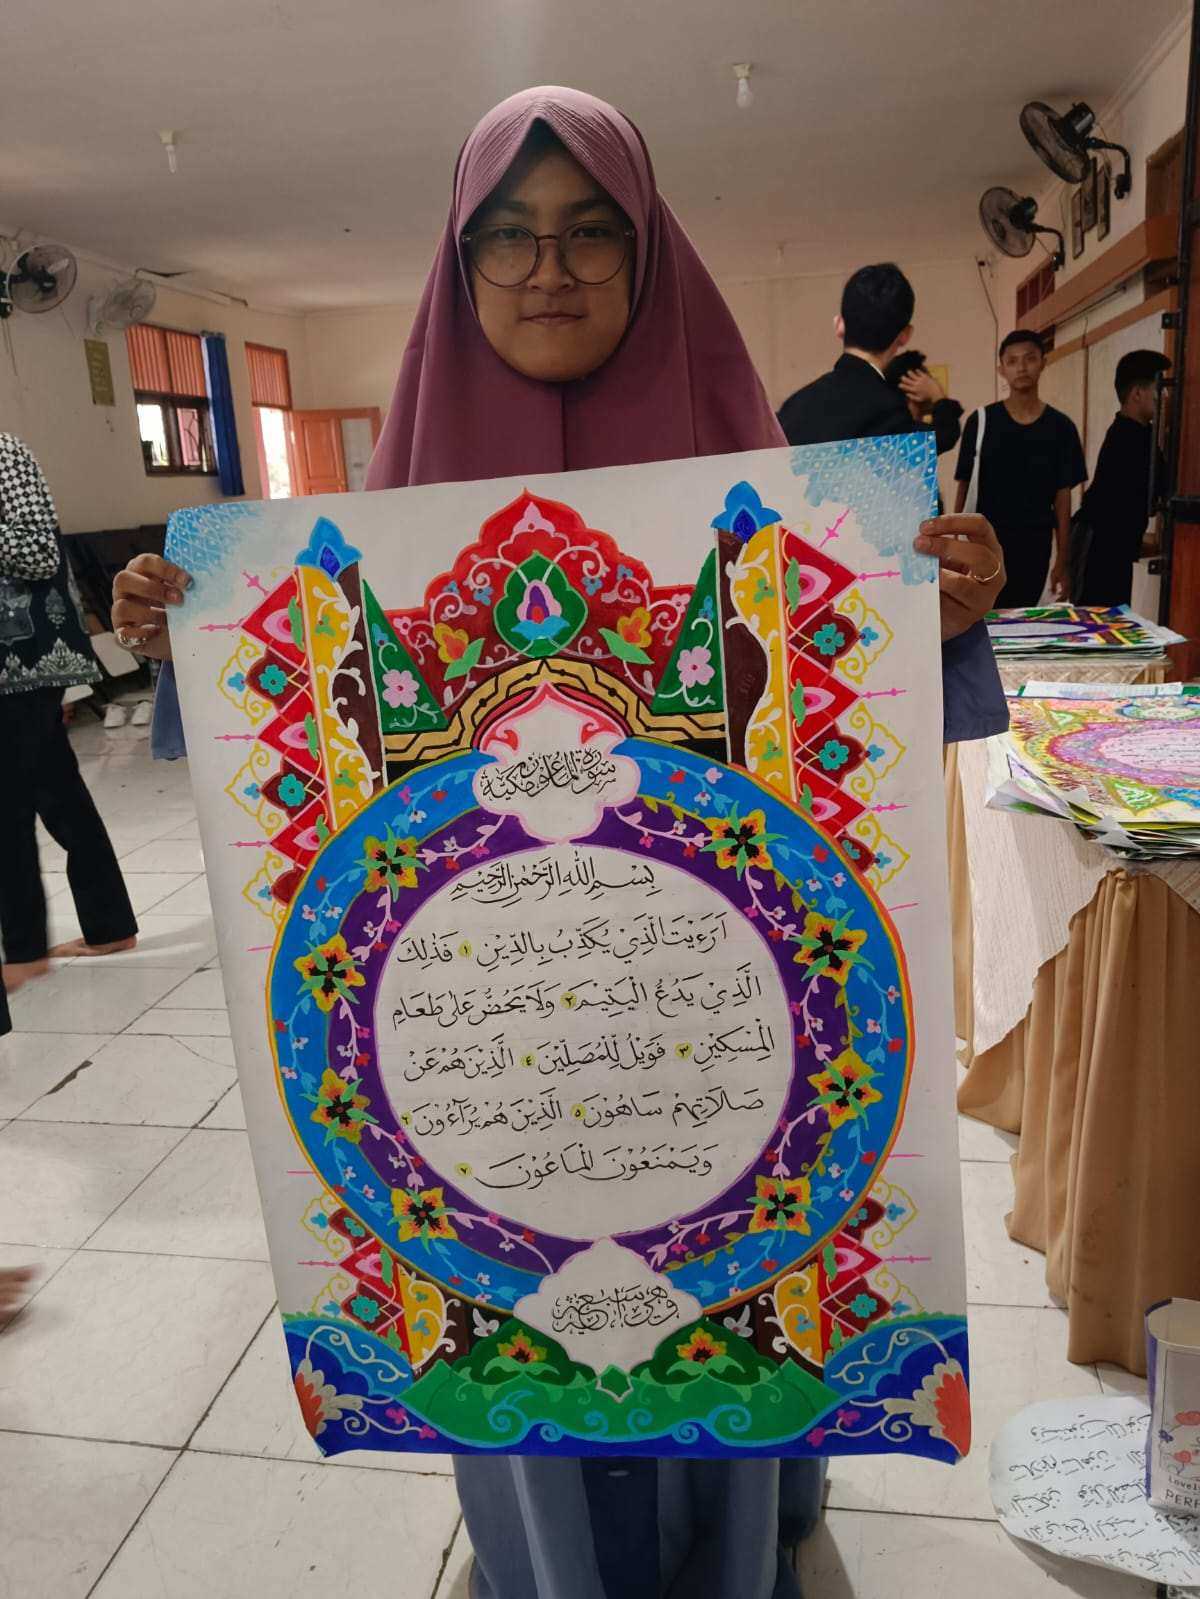 سورة الماعون مكية
بِسْمِ اللّٰهِ الرَّحْمٰنِ الرَّحِيْمِ
اَرَءَيْتَ الَّذِيْ يُكَذِّبُ بِالدِّيْنِ ١ فَذٰلِكَ
الَّذِيْ يَدُعُّ الْيَتِيْمَ ٢ وَلَا يَحُضُّ عَلٰى طَعَامِ
الْمِسْكِيْنِ ٣ فَوَيْلٌ لِّلْمُصَلِّيْنَ ٤ الَّذِيْنَ هُمْ عَنْ
صَلَاتِهِمْ سَاهُوْنَ ٥ الَّذِيْنَ هُمْ يُرَآءُوْنَ ٦
وَيَمْنَعُوْنَ الْمَاعُوْنَ ٧
وهي سبع آية